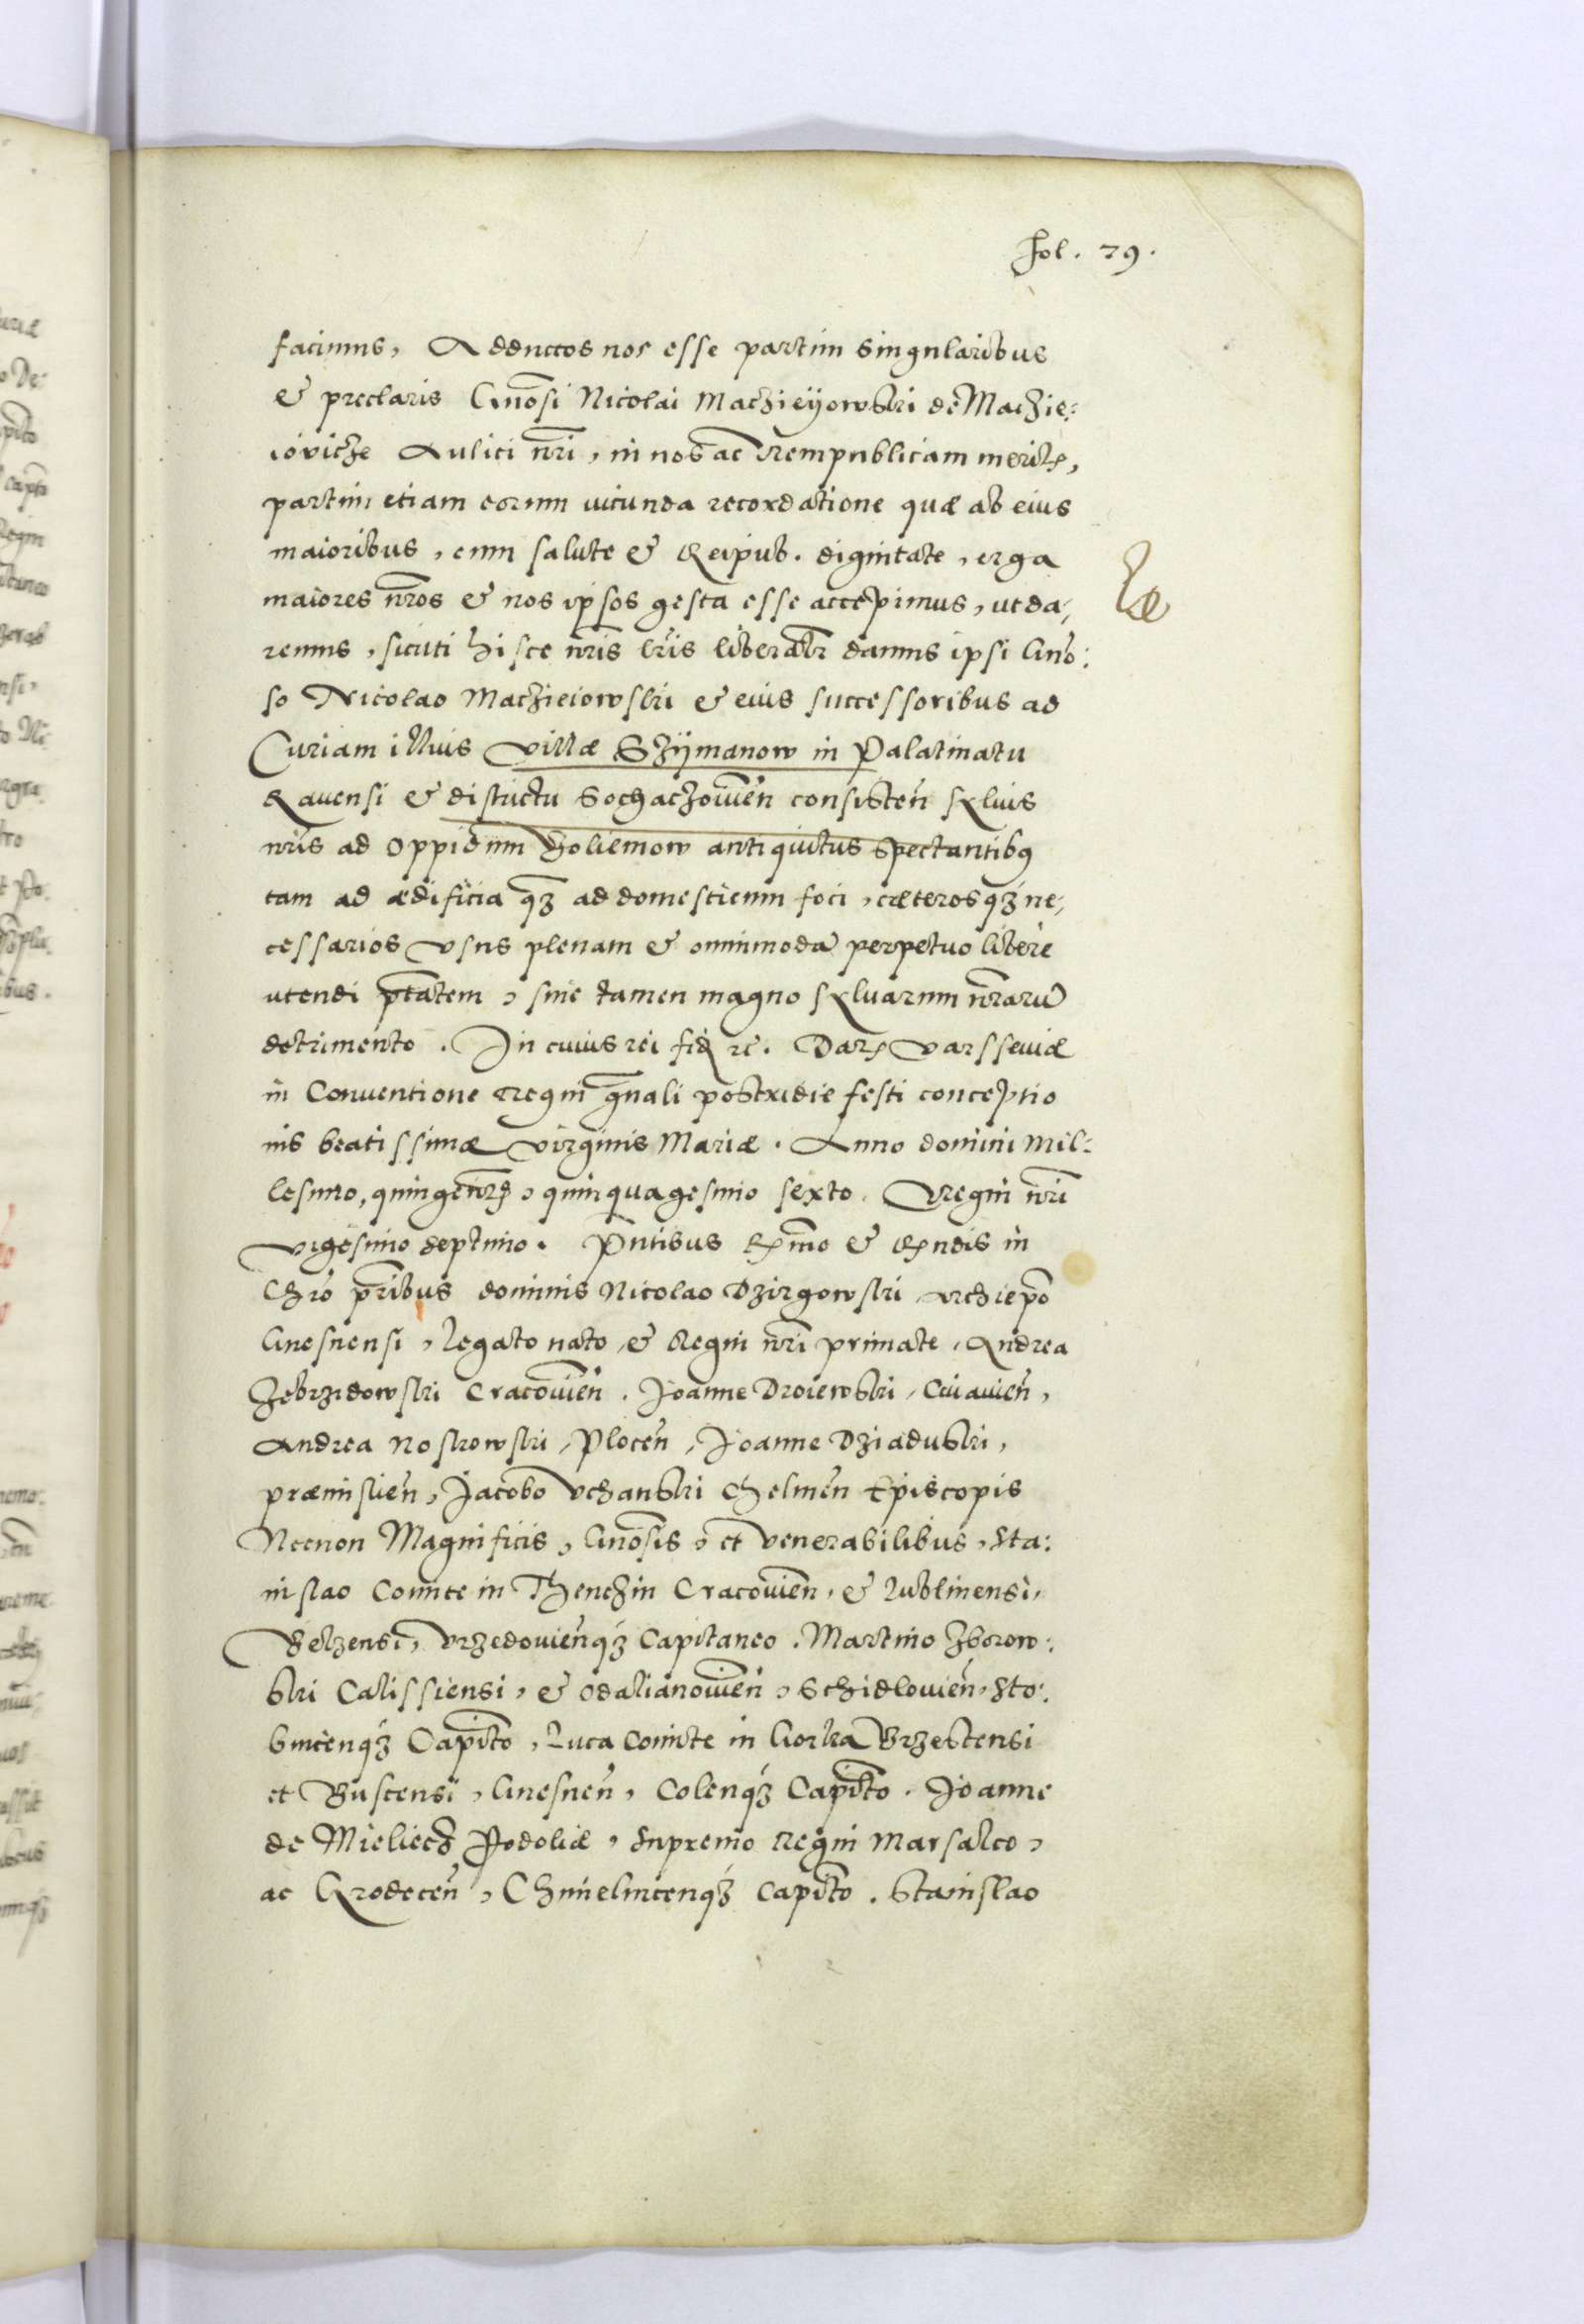 Fol. 79.
facimus, Adductos nos esse partim singularibus
& preclaris Gnosi Nicolai Machieyowski de Machie:
iovicze Aulici nri, in nos ac Rempublicam meritis,
partim etiam eorum iucunda recordatione quæ ab eius
maioribus, cum salute & Reipub. dignitate, erga
maiores nros & nos ipsos gesta esse accepimus, ut da,
remus, sicuti hisce nris lris liberalr damus ipsi Gno:
so Nicolao Machieiowski & eius successoribus ad
Curiam illius villæ Szymanow in Palatinatu
Ravensi & districtu Sochaczovien consisten sylvis
nris ad oppidum Boliemow antiquitus spectantibus
tam ad ædificia qz ad domesticum foci, cæterosqz ne,
cessarios usus plenam & omnimoda perpetuo libere
utendi ptatem, sine tamen magno sylvarum nraru
detrimento. In cuius rei fid rc. Dat Varssewiæ
in Conventione Regni gnali postridie festi conceptio
nis beatissimæ virginis Mariæ. Anno domini mil:
lesimo, quingenmo, quinquagesimo sexto. Regni nri
vigesimo septimo. Pntibus Rmo & Rndis in
Chro pribus dominis Nicolao Dzirgowski Archiepo
Gnesnensi, Legato nato, & Regni nri primate, Andrea
Zebrzidowski Cracovien. Joanne Droiewski, Cuiavien,
Andrea Noskowski, Plocen, Joanne Dziaduski,
præmislien, Jacobo Uchanski Chelmen Episcopis
Necnon Magnificis, Gnosis, et Venerabilibus, Sta:
nislao Comite in Thenczin Cracovien, & Lublinensi,
Belzensi, Urzedovienqz Capitaneo. Martino Zborow:
ski Calissiensi, & Odalianovien, Schidlovien, Sto:
bnicenqz Capito, Luca Comite in Gorka Brzestensi
et Buscensi, Gnesnen, Colenqz Capito. Joanne
de Mieliecz Podoliæ, Supremo Regni Marsalco,
ac Grodecen, Chmielnicenqz Capito. Stanislao